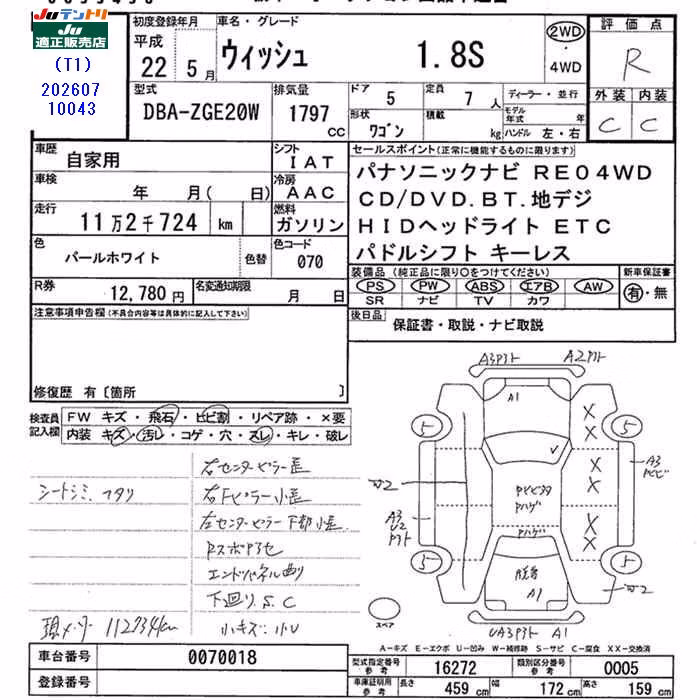 JUテントリ
JU
適正販売店
(T1)
202607
10043
初度登録年月
平成
22年 5月
車名・グレード
ウィッシュ 1.8S
2WD
・
4WD
評価点
R
外装 内装
C C
型式
DBA-ZGE20W
排気量
1797
CC
ドア
5
定員
7人
ディーラー・並行
モデル年式 年
形状
ワゴン
積載
kg
ハンドル 左・右
車歴
自家用
シフト
IAT
車検
年 月( 日)
冷房
AAC
走行
11万2千724 km
燃料
ガソリン
色
パールホワイト
色替
色コード
070
R券
12,780円
名変通知期限
月 日
セールスポイント(正常に機能するものに限ります)
パナソニックナビ RE04WD
CD/DVD.BT.地デジ
HIDヘッドライト ETC
パドルシフト キーレス
装備品 (純正品に限り○をつけてください)
PS PW ABS エアB AW
SR ナビ TV カワ
新車保証書
有・無
後日品
保証書・取説・ナビ取説
注意事項申告欄(不具合内容等は具体的に記入して下さい)
修復歴 有〔箇所 〕
検査員記入欄
FW キズ・飛石・ヒビ割・リペア跡・×要
内装 キズ・汚レ・コゲ・穴・スレ・キレ・破レ
右センターピラー歪
シートシミ.
右Fピラー小歪
左センターピラー下部小歪
エンドパネル曲り
下廻りS.C
小キズ・小U
112734km
A2
A1
5
5
5
5
A3
A1
A1
スペア
A-キズ E-エクボ U-凹み W-補修跡 S-サビ C-腐食 XX-交換済
車台番号
0070018
登録番号
型式指定番号
参考
16272
類別区分番号
参考
0005
車庫証明用
参考
長さ
459 cm
幅
172 cm
高さ
159 cm